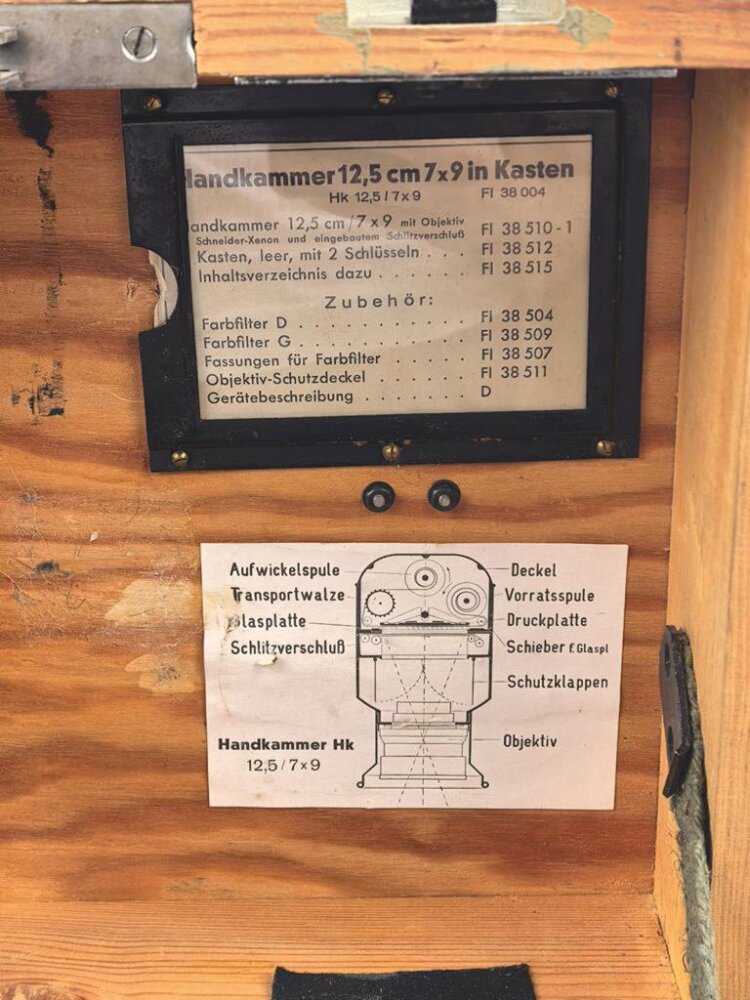 Handkammer 12,5 cm 7x9 in Kasten
Hk 12,5/7x9 Fl 38 004
andkammer 12,5 cm/7x9 mit Objektiv Fl 38 510-1
Schneider-Xenon und eingebautem Schlitzverschluß
Kasten, leer, mit 2 Schlüsseln . . . Fl 38 512
Inhaltsverzeichnis dazu . . . . . . Fl 38 515
Zubehör:
Farbfilter D . . . . . . . . . . Fl 38 504
Farbfilter G . . . . . . . . . . Fl 38 509
Fassungen für Farbfilter . . . . . Fl 38 507
Objektiv-Schutzdeckel . . . . . . Fl 38 511
Gerätebeschreibung . . . . . . . D
Aufwickelspule Deckel
Transportwalze Vorratsspule
Glasplatte Druckplatte
Schlitzverschluß Schieber f. Glaspl
Schutzklappen
Handkammer Hk Objektiv
12,5/7x9